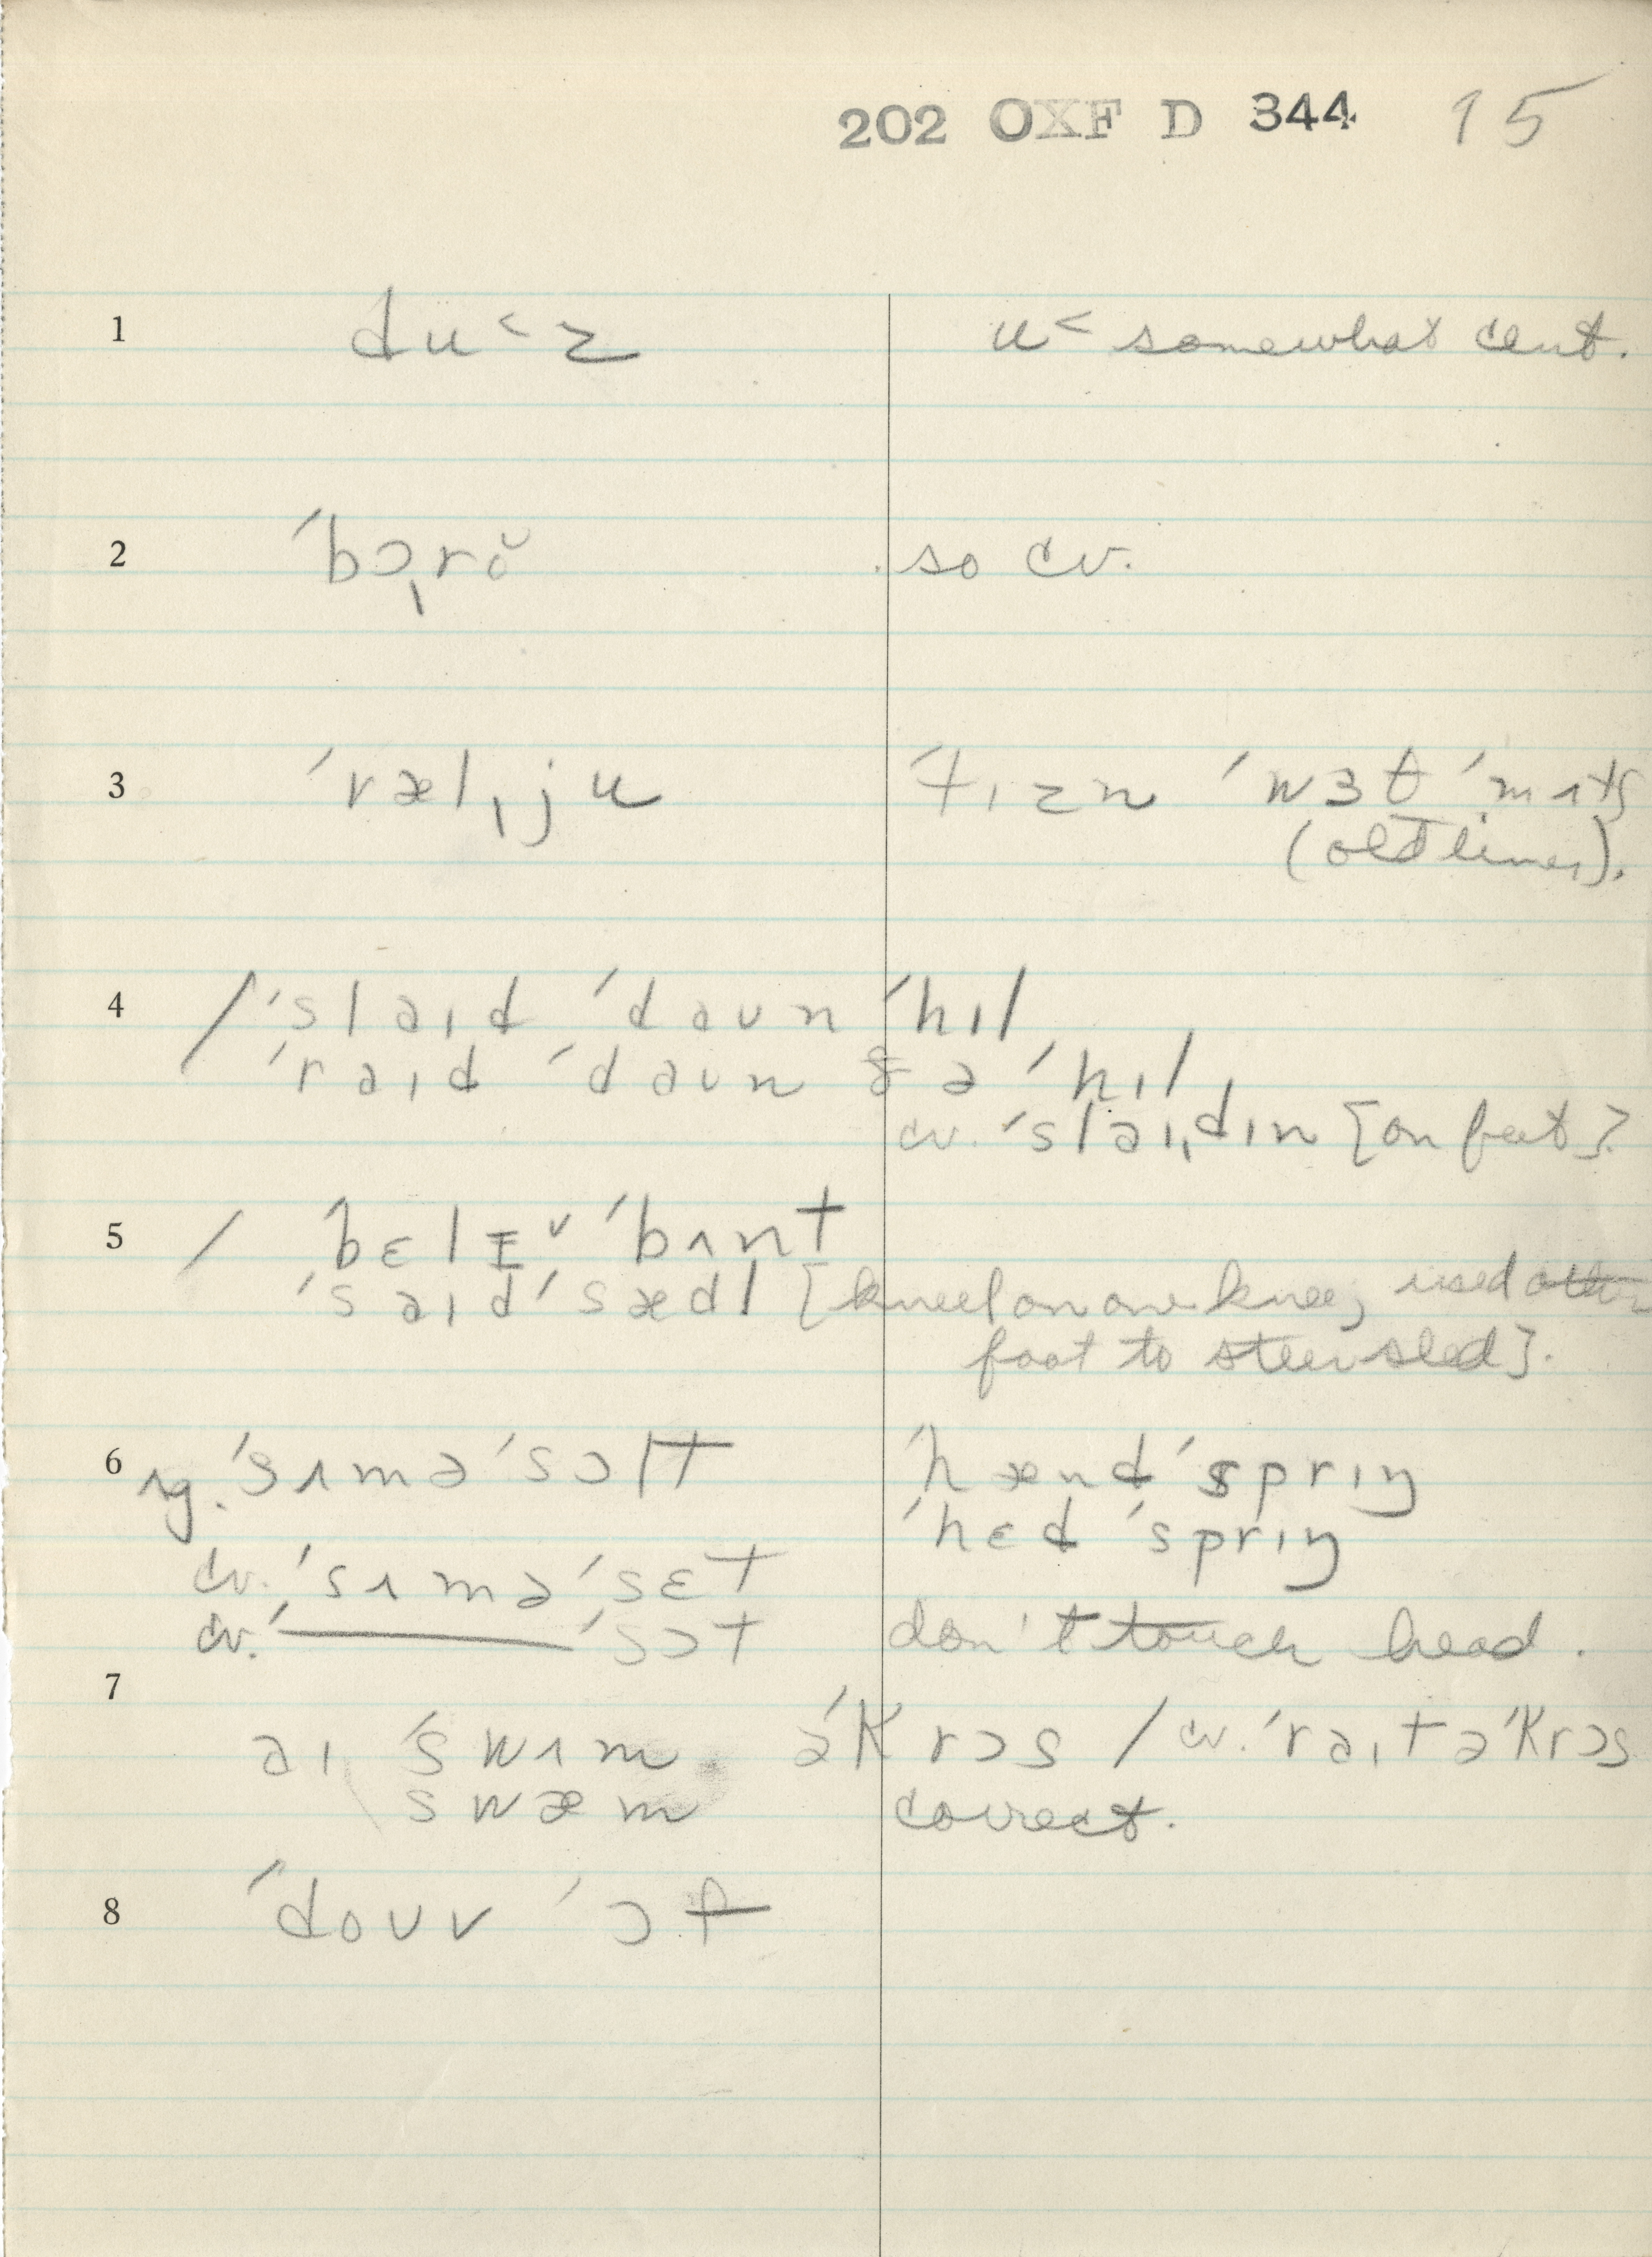 202 OXF D 344 15
1 du˂z u˂ somewhat cent.
2 ˊbɔ̩rə̆ so cv.
3 ˊræl ̩ju ˊtɪzn ˊwɜθ ˊmʌtʃ
(old timer).
4 / ˊslaɪd ˊdaun ˊhɪl
ˊraɪd ˊdaun ðə ˊhɪl
cv. ˊslaɪ ̩dɪn [on feet].
5 / ˊbɛlɪ˅ ˊbʌnt
ˊsaɪd ˊsædl [kneel on one knee, used other
foot to steer sled].
6 rg. ˊsʌməˊsɔlt ˊhændˊsprɪŋ
ˊhɛdˊsprɪŋ
cv. ˊsʌməˊsɛt
cv. ˊ—— ˊsɔt don't touch head.
7
aɪ ˊswʌm əˊkrɔs / cv. ˊraɪt əˊkrɔs
swæm correct.
8 ˊdouv ˊɔf